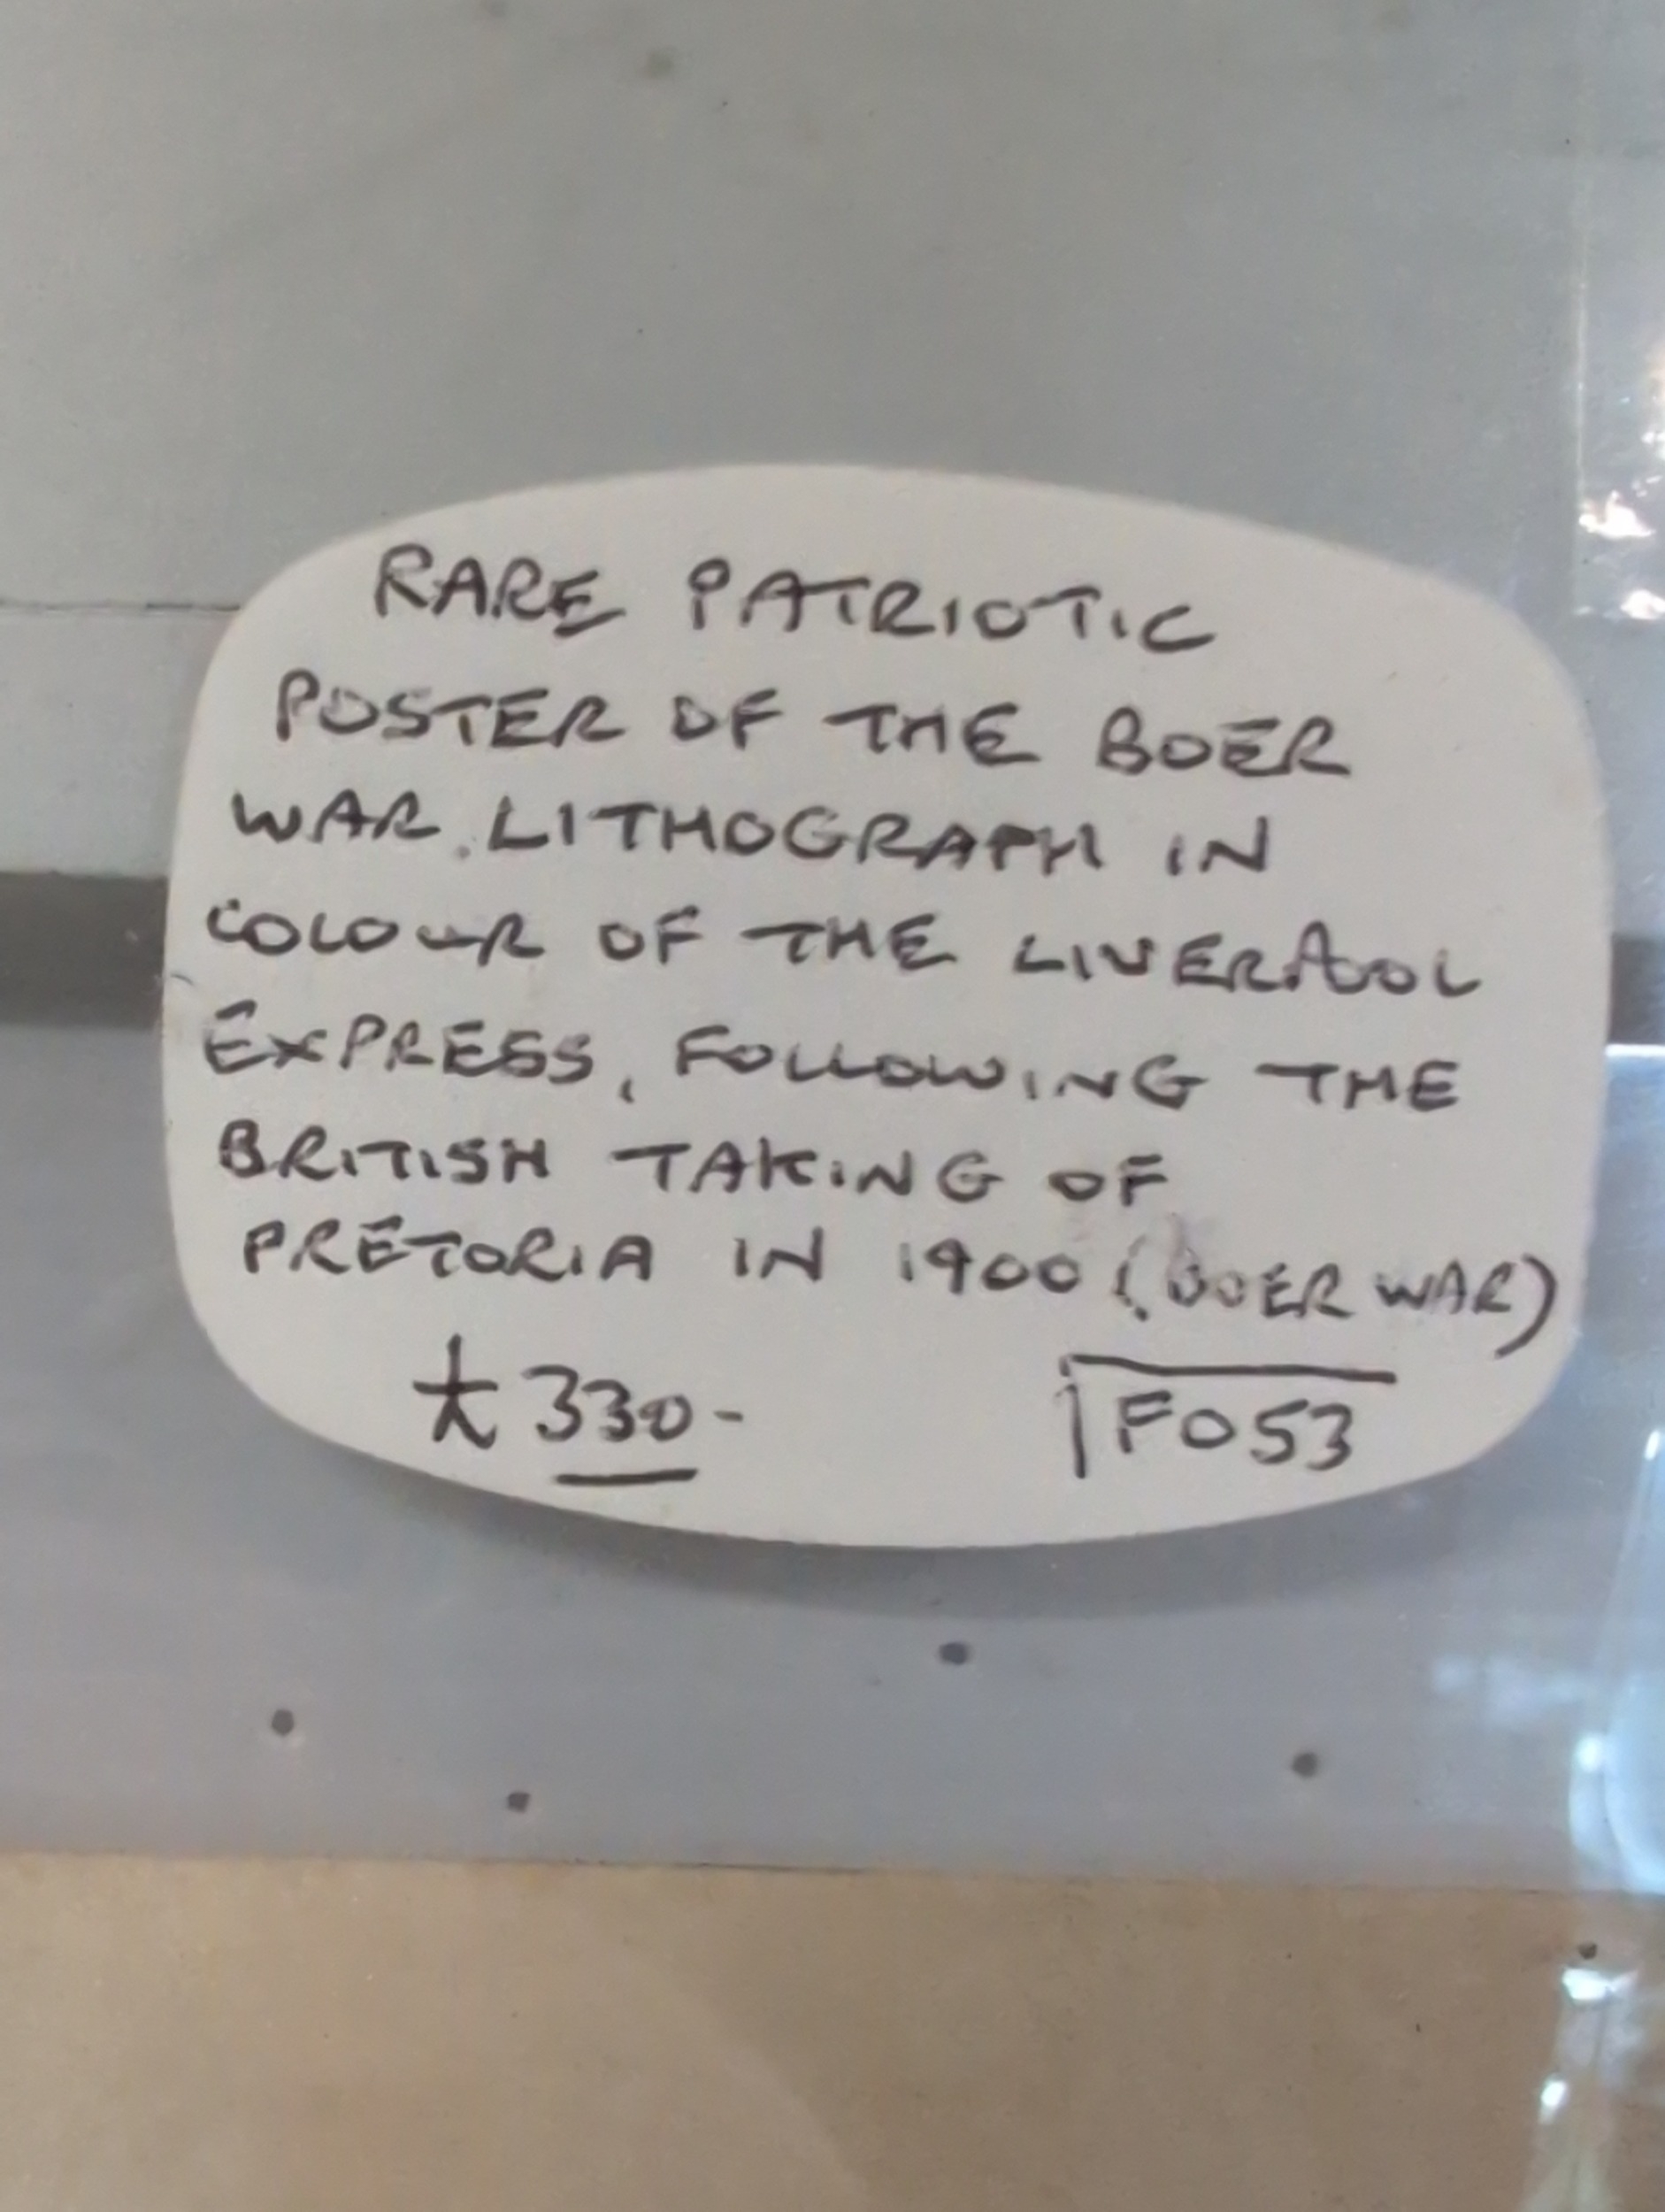 RARE PATRIOTIC
POSTER OF THE BOER
WAR. LITHOGRAPH IN
COLOUR OF THE LIVERPOOL
EXPRESS, FOLLOWING THE
BRITISH TAKING OF
PRETORIA IN 1900 (BOER WAR)
330-
FO53